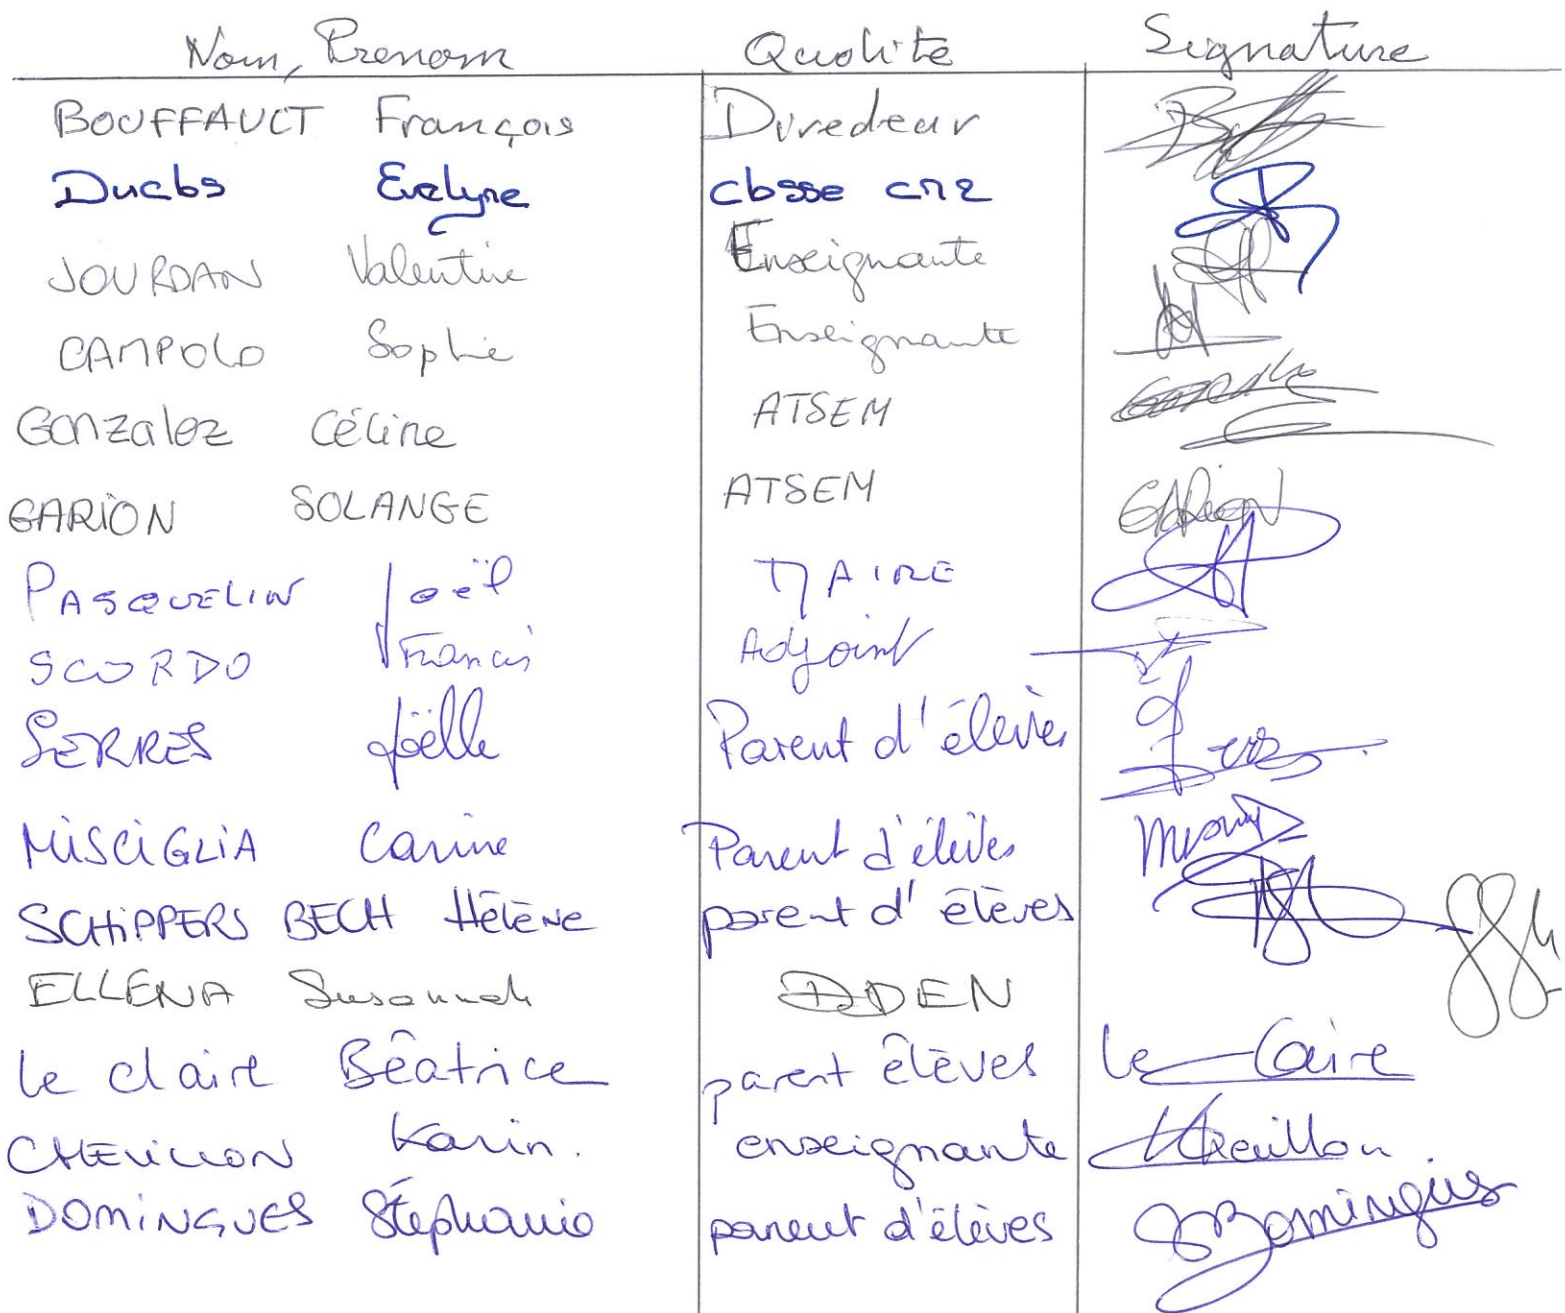 Nom, Prenom Qualité Signature
BOUFFAULT François Directeur
Duclos Evelyne classe CM2
JOURDAN Valentine Enseignante
CAMPOLO Sophie Enseignante
Gonzalez Céline ATSEM
GARION SOLANGE ATSEM GARION
PASQUELIN Joël MAIRE
SCORDO Francis Adjoint
SERRES Joëlle Parent d'élèves
MISCIGLIA Carine Parent d'élèves
SCHIPPERS BECH Hélène parent d'élèves
ELLENA Susannah DDEN
le claire Béatrice parent élèves le Claire
CHEVILLON Karin. enseignante Chevillon
DOMINGUES Stéphanie parent d'élèves Domingues